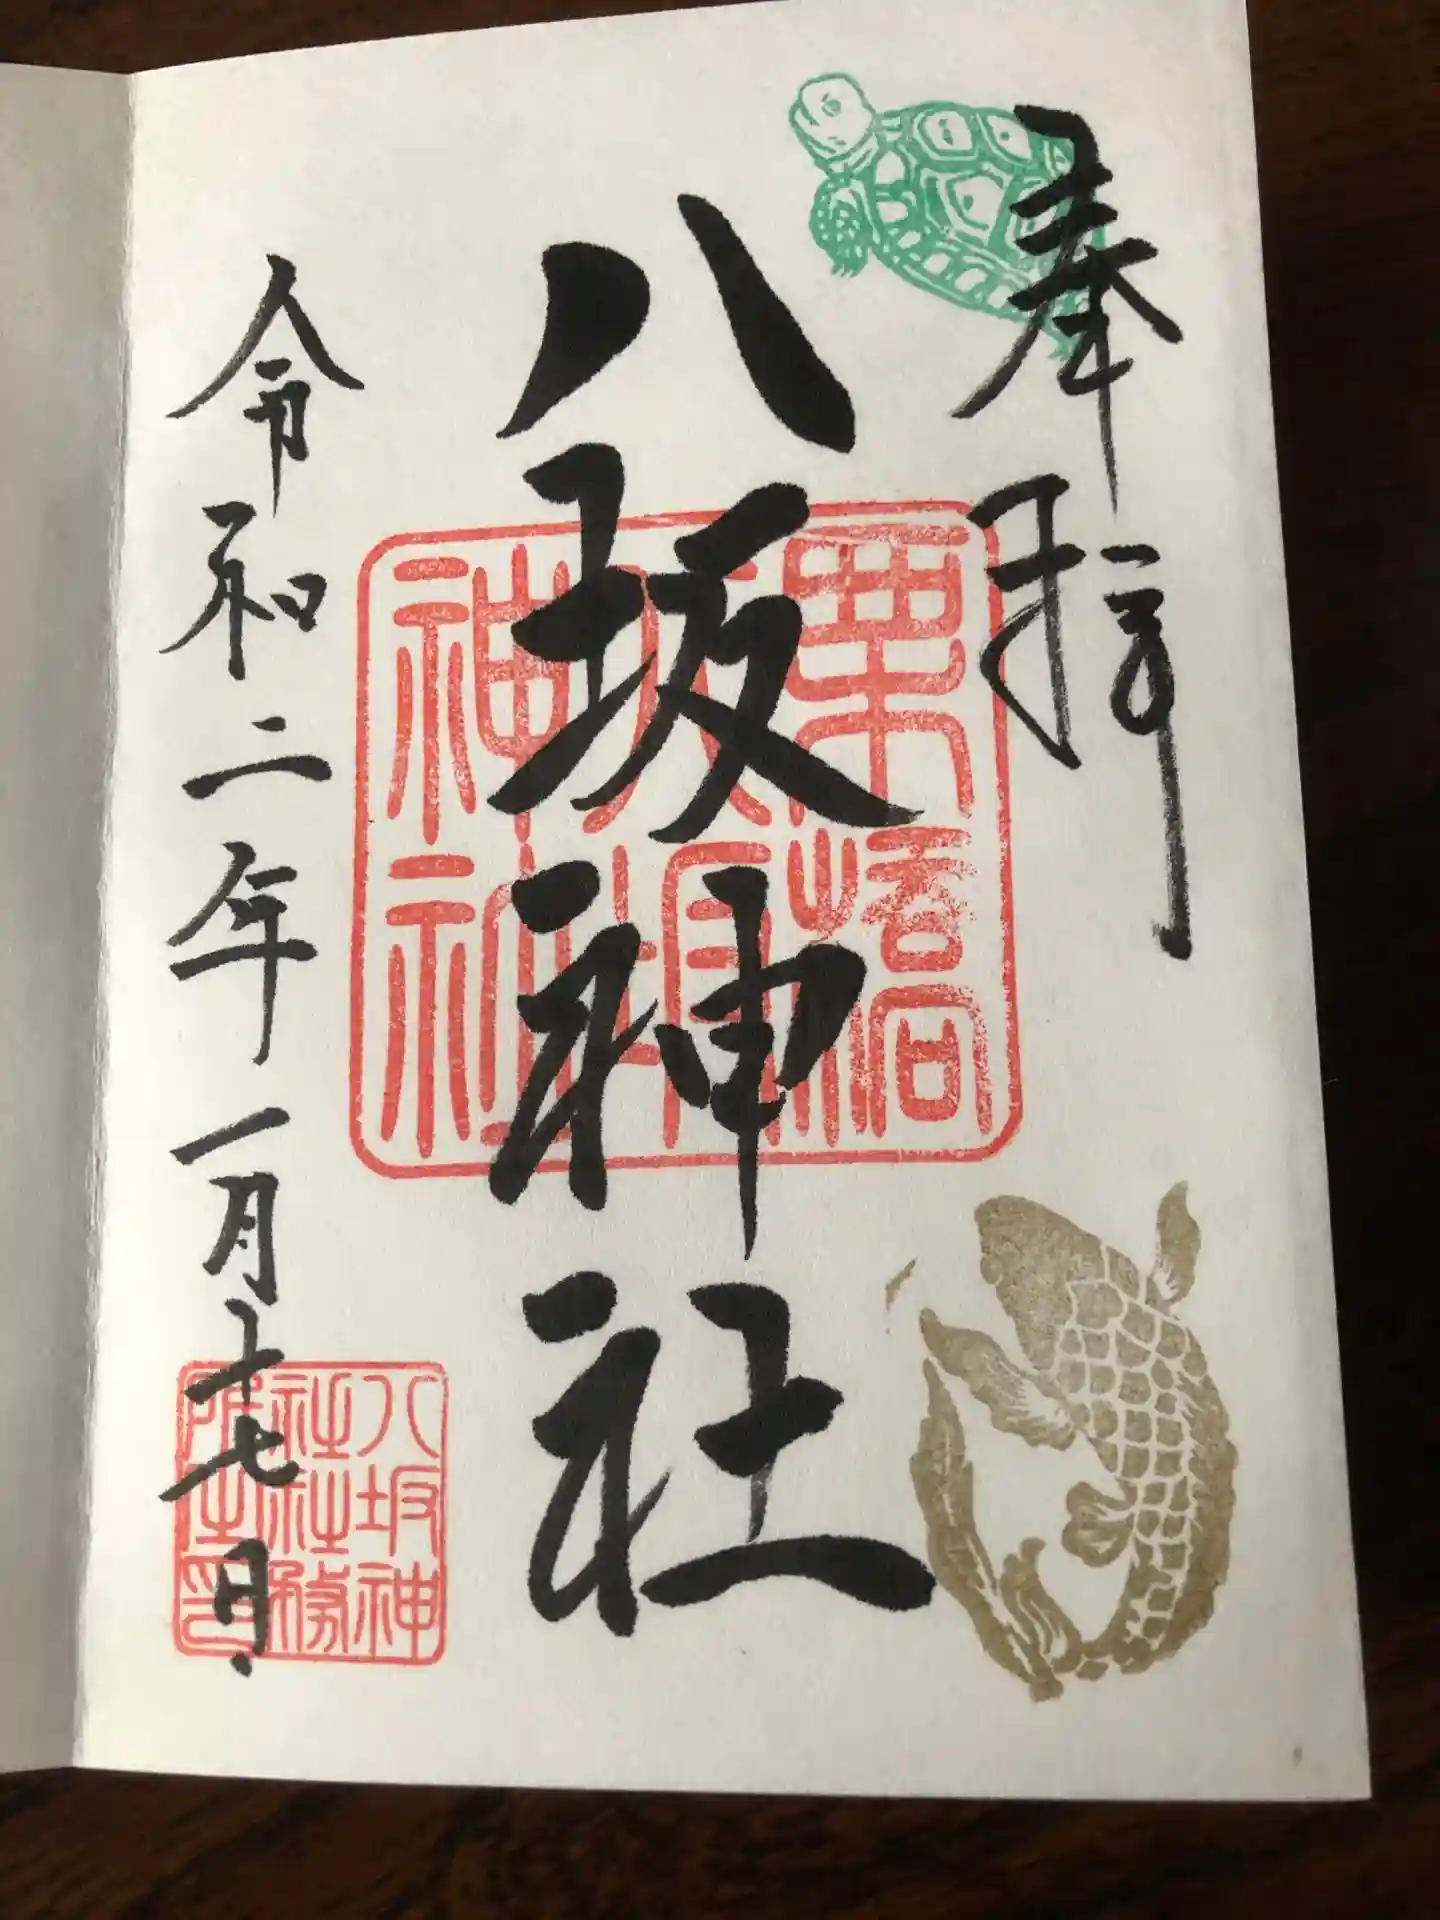 奉拝
八坂神社
令和二年一月十七日
粟嵜
八坂
神社
八坂神
社社務
所之印